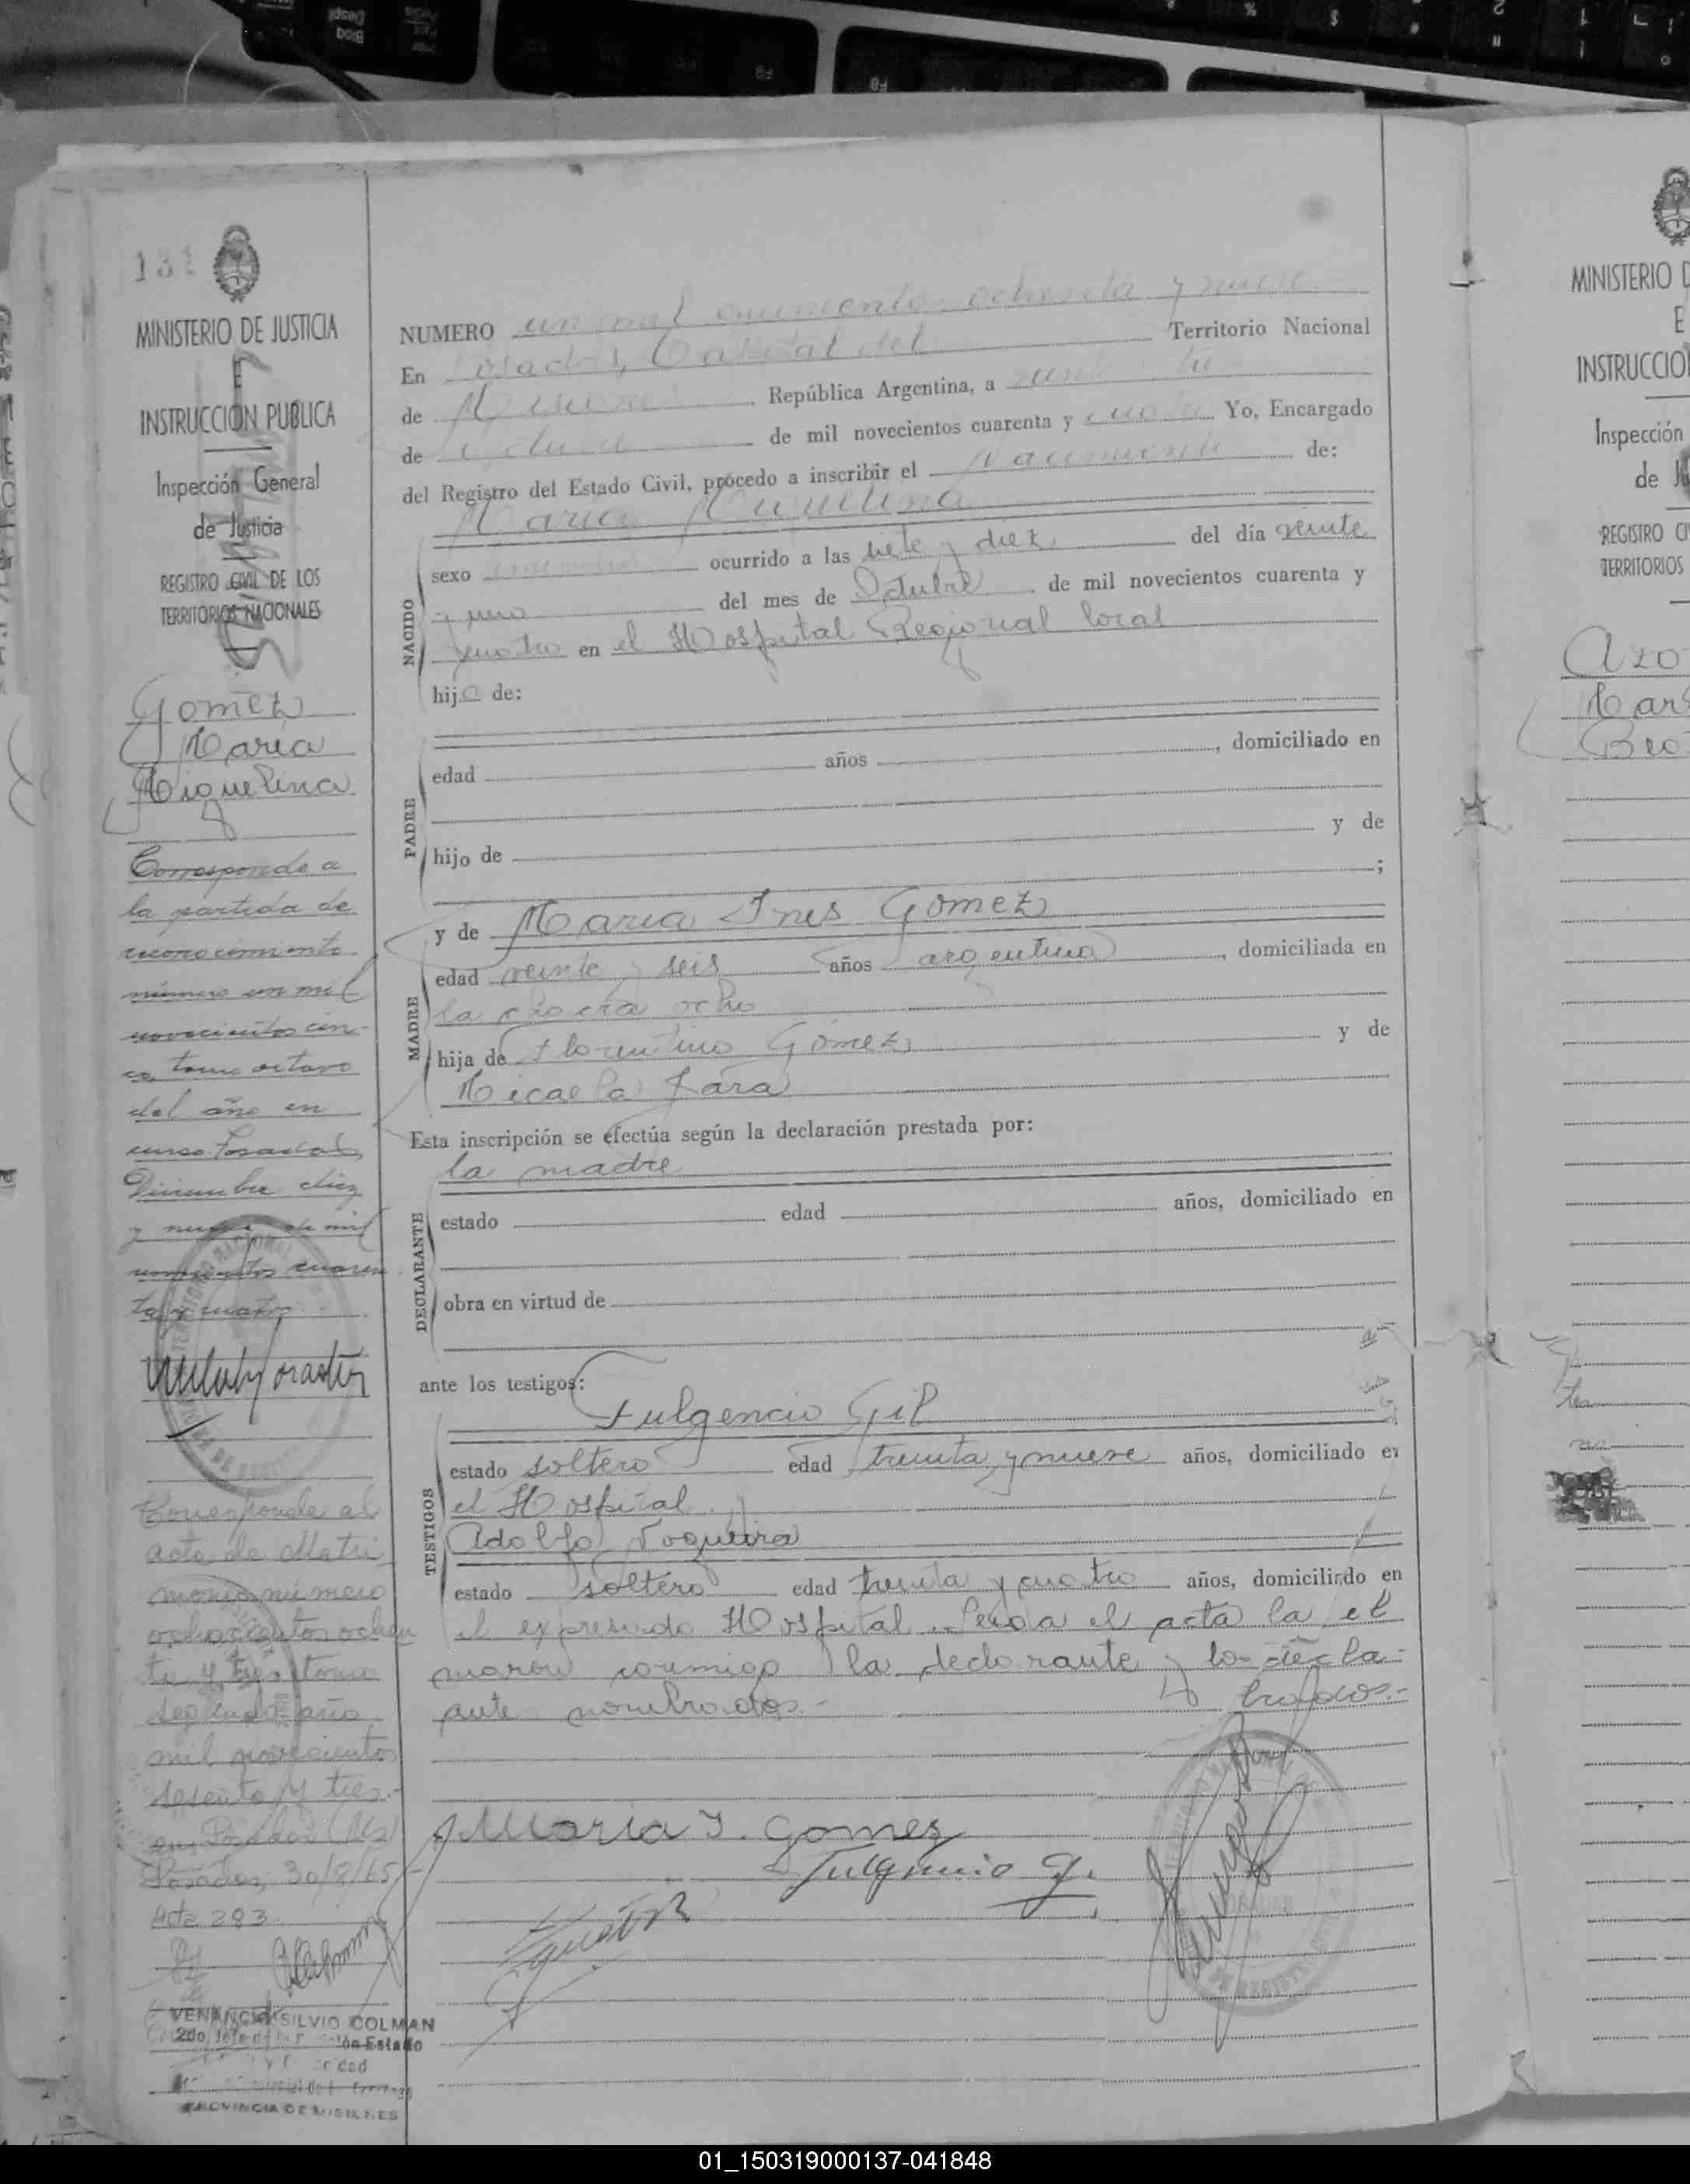 131
MINISTERIO DE JUSTICIA
E
INSTRUCCION PUBLICA
Inspección General
de Justicia
REGISTRO CIVIL DE LOS
TERRITORIOS NACIONALES
Gomez
Maria
Miguelina
Corresponde a
la partida de
reconocimiento
número un mil
novecientos cin-
co, tomo octavo
del año en
curso. Posadas,
Diciembre diez
y nueve de mil
novecientos cuaren
ta y cuatro.
Corresponde al
acta de Matri
monio número
ochocientos ochen
ta y tres tomo
segundo año
mil novecientos
sesenta y tres.-
en Posadas (Ms)
Posadas, 30/8/65
Acta 293
VENANCIO SILVIO COLMAN
2do. Jefe
PROVINCIA DE MISIONES
NUMERO un mil quinientos ochenta y nueve
En Posadas, Capital del Territorio Nacional
de Misiones República Argentina, a
de Octubre de mil novecientos cuarenta y cuatro Yo, Encargado
del Registro del Estado Civil, procedo a inscribir el Nacimiento de:
Maria Miguelina
NACIDO
sexo ocurrido a las siete y diez del día veinte
y uno del mes de Octubre de mil novecientos cuarenta y
cuatro en el Hospital Regional local
hija de:
PADRE
edad años , domiciliado en
hijo de y de
;
y de Maria Ines Gomez
MADRE
edad veinte y seis años argentina , domiciliada en
la chacra ocho
hija de Florentino Gomez y de
Micaela Jara
Esta inscripción se efectúa según la declaración prestada por:
la madre
DECLARANTE
estado edad años, domiciliado en
obra en virtud de
ante los testigos:
Fulgencio Gil
TESTIGOS
estado soltero edad treinta y nueve años, domiciliado en
el Hospital
Adolfo Noqueira
estado soltero edad treinta y cuatro años, domiciliado en
el expresado Hospital. Leida el acta la
conmigo la declarante y los
ante nombrados.-
Maria I. Gomez
Fulgencio G.
MINISTERIO D
E
INSTRUCCIO
Inspección
de
REGISTRO CI
TERRITORIOS
01_150319000137-041848